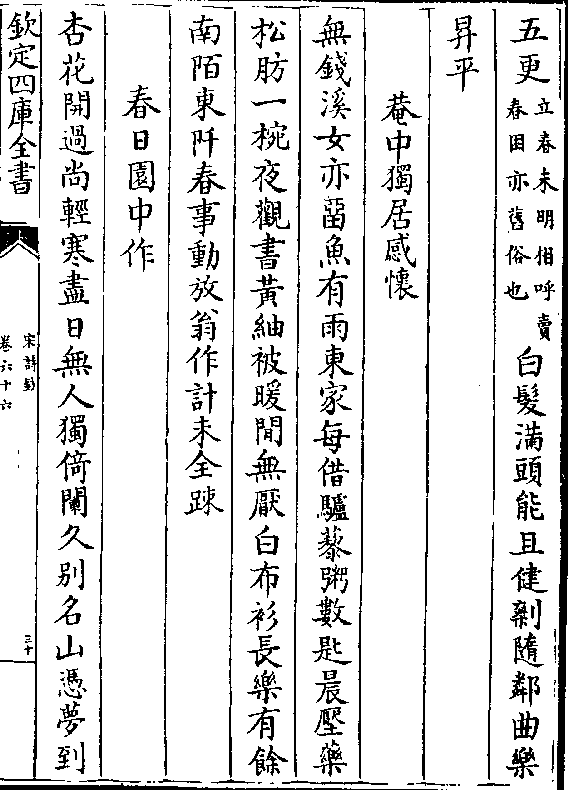 五更立春未明相呼賣
春困亦舊俗也白髮滿頭能且健剩隨鄰曲樂
昇平
菴中獨居感懷
無錢溪女亦留魚有雨東家每借驢藜粥數匙晨壓藥
松肪一椀夜觀書黃紬被暖閒無厭白布衫長樂有餘
南陌東阡春事動放翁作計未全踈
春日園中作
杏花開過尚輕寒盡日無人獨倚闌久別名山憑夢到
欽定四庫全書
宋詩鈔
卷六十六
三十